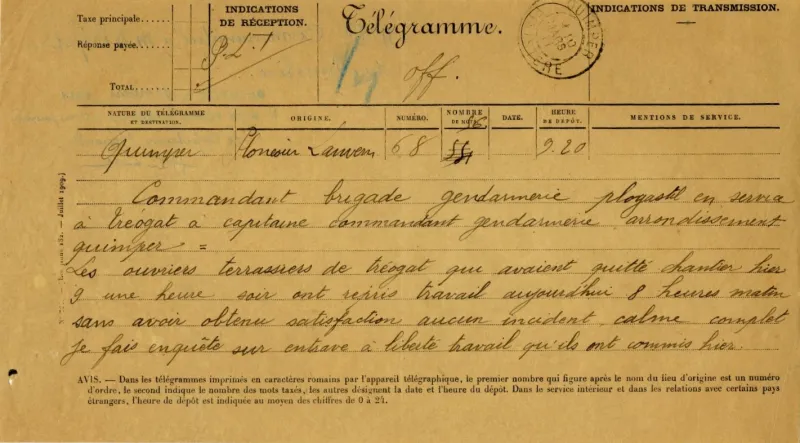 Taxe principale......
Réponse payée.....
TOTAL.......
INDICATIONS
DE RÉCEPTION.
Télégramme.
INDICATIONS DE TRANSMISSION.
QUIMPER
off.
NATURE DU TÉLÉGRAMME
ET DESTINATION.
ORIGINE.
NUMÉRO.
NOMBRE
DE MOTS.
DATE.
HEURE
DE DÉPÔT.
MENTIONS DE SERVICE.
Quimper Plonéour Lanvern 68 56 9.20
Commandant brigade gendarmerie plogastel en service
à tréogat à capitaine commandant gendarmerie arrondissement
quimper =
Les ouvriers terrassiers de tréogat qui avaient quitté chantier hier
9 une heure soir ont repris travail aujourd'hui 8 heures matin
sans avoir obtenu satisfaction aucun incident calme complet
je fais enquête sur entrave à liberté travail qu'ils ont commis hier.
Juillet 1909.
AVIS. — Dans les télégrammes imprimés en caractères romains par l'appareil télégraphique, le premier nombre qui figure après le nom du lieu d'origine est un numéro
d'ordre, le second indique le nombre des mots taxés, les autres désignent la date et l'heure du dépôt. Dans le service intérieur et dans les relations avec certains pays
étrangers, l'heure de dépôt est indiquée au moyen des chiffres de 0 à 24.